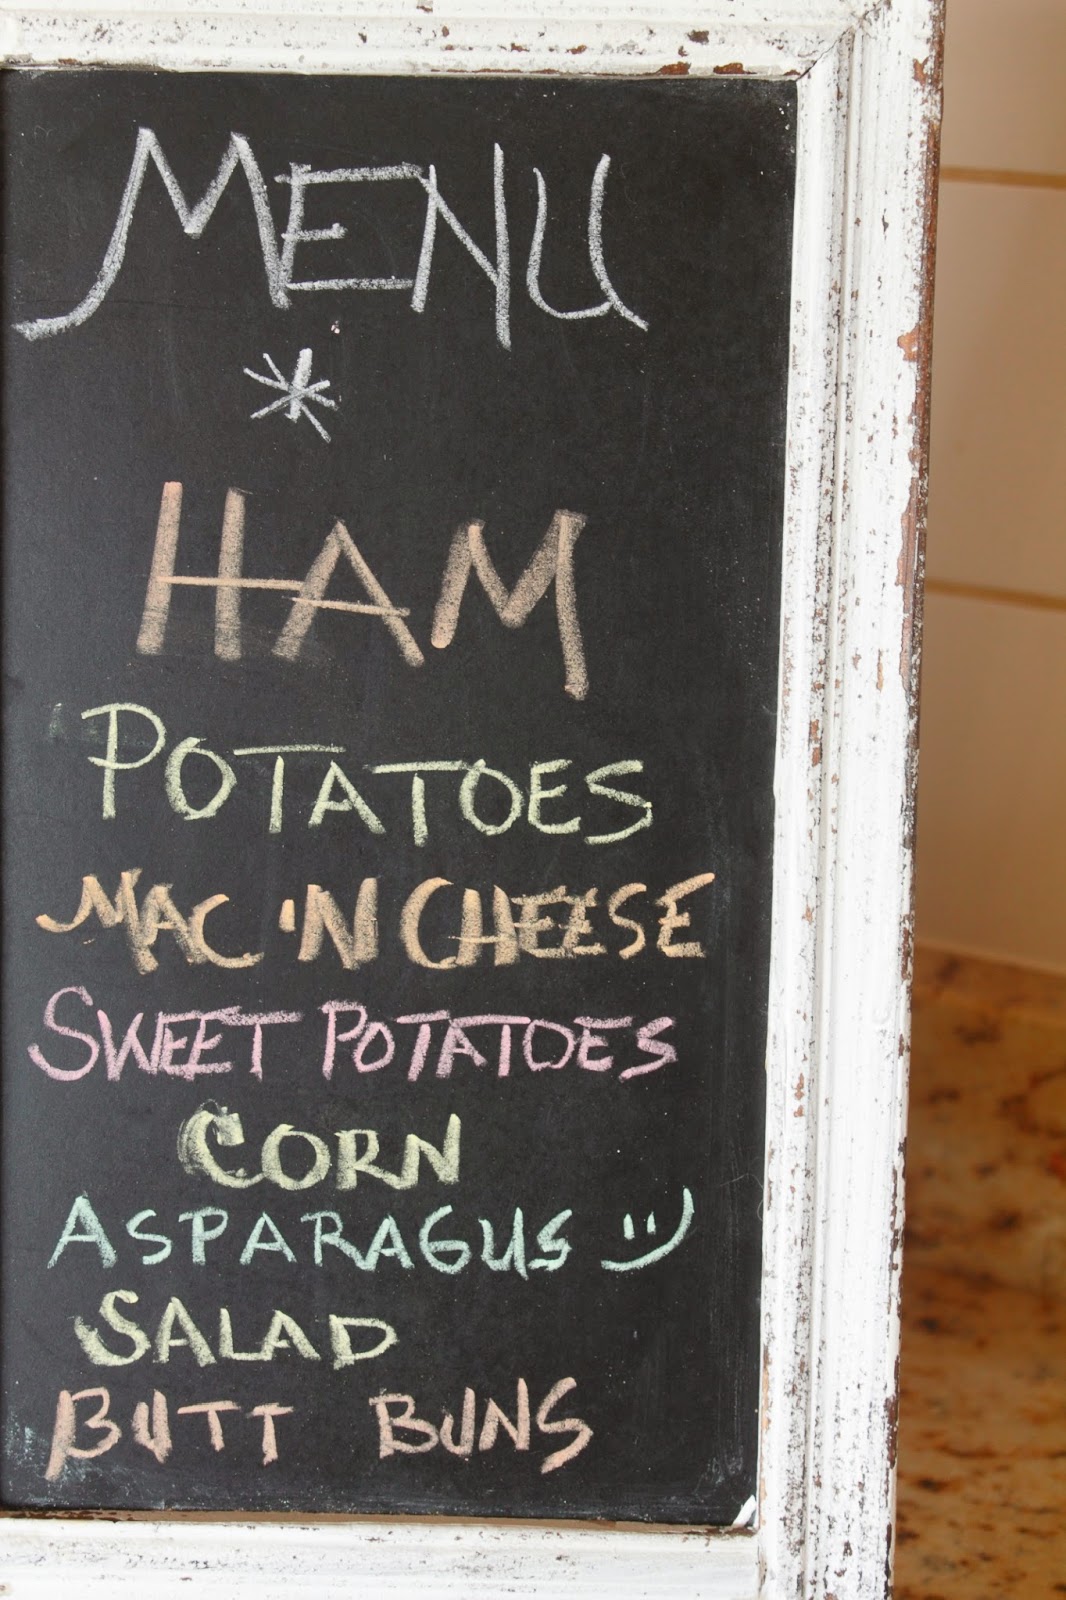 MENU
*
HAM
POTATOES
MAC 'N CHEESE
SWEET POTATOES
CORN
ASPARAGUS :)
SALAD
BUTT BUNS